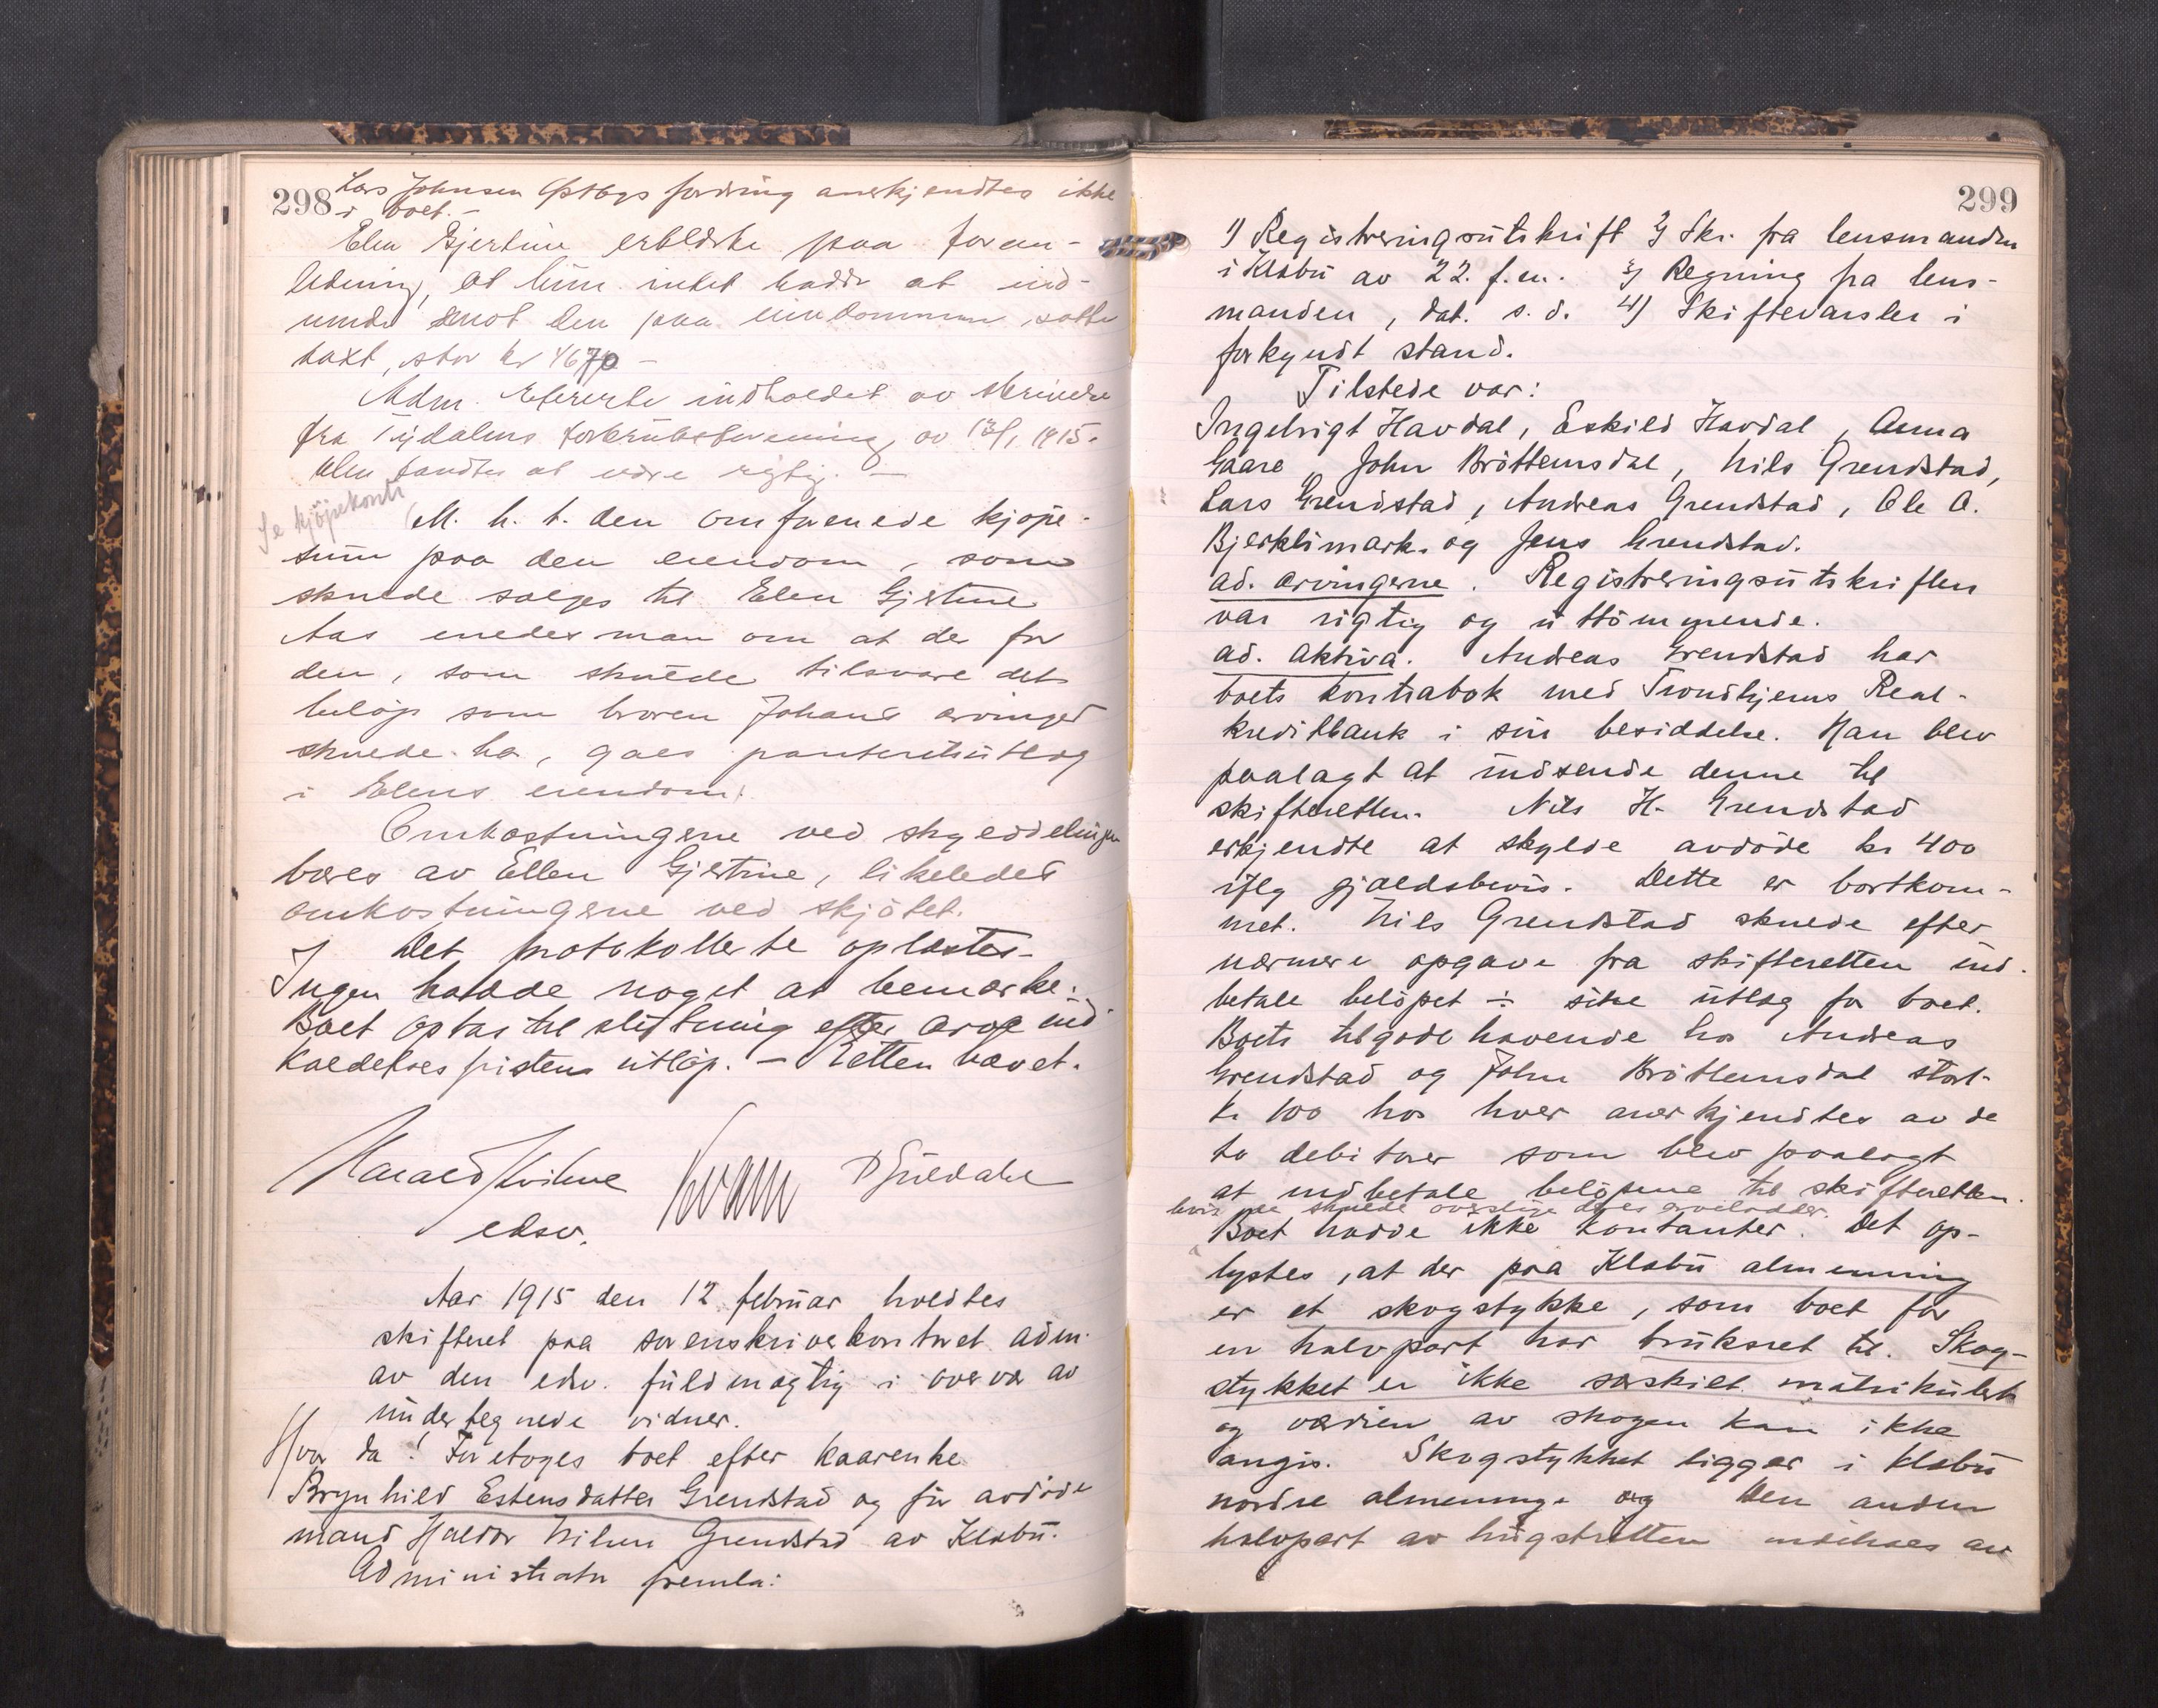 298
Lars Johnsen Østbys fordring anerkjendtes ikke
i boet.-
Elen Gjertine erklærte paa foran-
ledning, at hun intet hadde at ind-
vende mot den paa eiendommen satte
taxt, stor kr 4670 -
Adm. refererte indholdet av skrivelse
fra Tydalens forbruksforening av 13/1 1915.
Den fandtes at være rigtig. -
Se kjøpekontr
M. h. t. den omforenede kjøpe-
sum paa den eiendom, som
skulde sælges til Elen Gjertine
Aas enedes man om at der for
den, som skulde tilsvare det
beløp som broren Johans arvinger
skulde ha, gaes panteretsutlæg
i Elens eiendom.
Omkostningerne ved skylddelingen
bæres av Ellen Gjertine, likeledes
omkostningerne ved skjøtet.
Det protokollerte oplæstes-
Ingen hadde noget at bemerke.
Boet optas til slutning efter
kaldelses fristens utløp. - Retten hævet.
Harald
edsv.
Aar 1915 den 12 februar holdtes
skifteret paa sorenskriverkontoret adm.
av den edsv. fuldmægtig i overvær av
undertegnede vidner.
Hvor da! Foretoges boet efter kaarenke
Brynhild Estensdatter Grendstad og før avdøde
mand Haldor Nilsen Grendstad av Klæbu.
Administrator fremla:
299
1) Registreringsutskrift 2) Skr. fra lensmanden
i Klæbu av 22. f.m. 3) Regning fra lens-
manden, dat. s. d. 4) Skiftevarsler i
forkyndt stand.
Tilstede var:
Ingebrigt Havdal, Eskild Havdal, Anna
Gaare, John Brøttemsdal, Nils Grendstad,
Lars Grendstad, Andreas Grendstad, Ole O.
Bjerklimark. og Jens Grendstad.
ad. arvingerne. Registreringsutskriften
var rigtig og uttømmende.
ad. aktiva. Andreas Grendstad har
boets kontrabok med Trondhjems Real-
kreditbank i sin besiddelse. Han blev
paalagt at indsende denne til
skifteretten. Nils H. Grendstad
erkjendte at skylde avdøde kr 400
iflg gjældsbevis. Dette er bortkom-
met. Nils Grendstad skulde efter
nærmere opgave fra skifteretten ind-
betale beløpet ÷ sine utlæg for boet.
Boets tilgodehavende hos Andreas
Grendstad og John Brøttemsdal stort
kr 100 hos hver anerkjendtes av de
to debitorer som blev paalagt
at indbetale beløpene til skifteretten.
hvis de skulde overstige deres arvelodder.
Boet hadde ikke kontanter. Det op-
lystes, at der paa Klæbu almenning
er et skogstykke, som boet for
en halvpart har bruksret til. Skog-
stykket er ikke særskilt matrikulert
og værdien av skogen kan ikke
angis. Skogstykket ligger i Klæbu
nordre almenninge og den anden
halvpart av hugstretten indehaes av